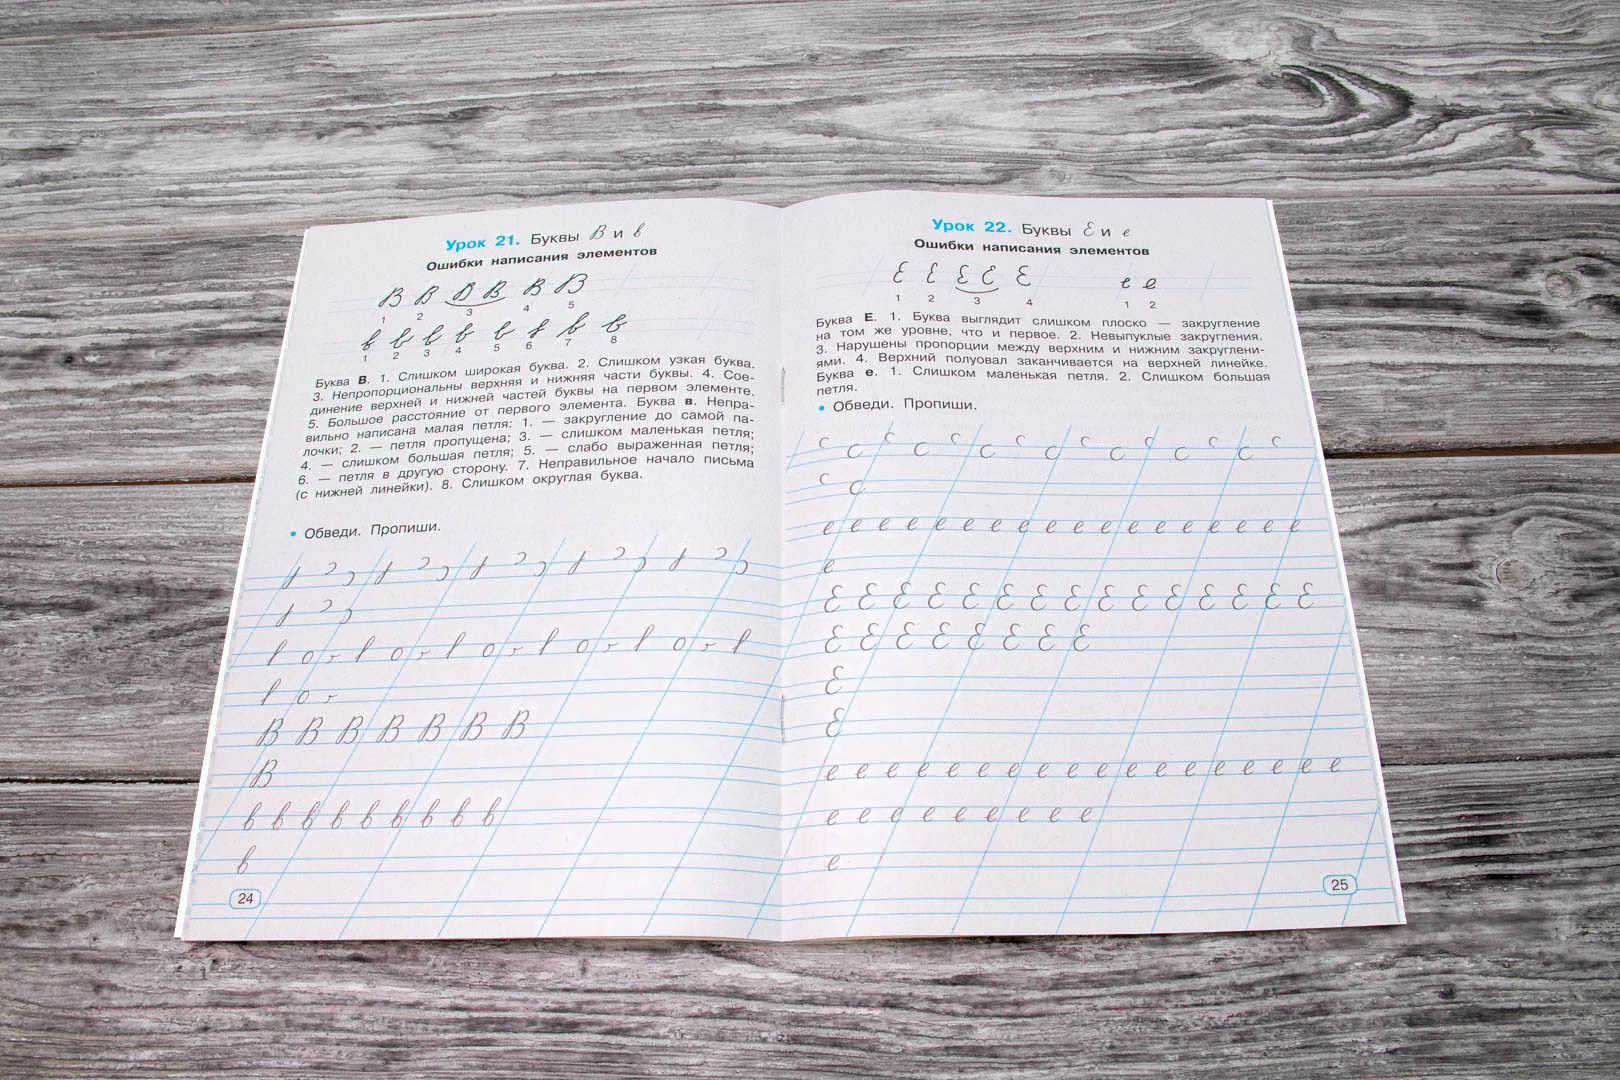 Урок 21. Буквы В и в
Ошибки написания элементов
В В В В В В
1 2 3 4 5
в в в в в в в в
1 2 3 4 5 6 7 8
Буква В. 1. Слишком широкая буква. 2. Слишком узкая буква.
3. Непропорциональны верхняя и нижняя части буквы. 4. Сое-
динение верхней и нижней частей буквы на первом элементе.
5. Большое расстояние от первого элемента. Буква в. Непра-
вильно написана малая петля: 1. — закругление до самой па-
лочки; 2. — петля пропущена; 3. — слишком маленькая петля;
4. — слишком большая петля; 5. — слабо выраженная петля;
6. — петля в другую сторону. 7. Неправильное начало письма
(с нижней линейки). 8. Слишком округлая буква.
• Обведи. Пропиши.
В В В В В В В
В
в в в в в в в в в
в
24
Урок 22. Буквы Е и е
Ошибки написания элементов
Е Е Е Е Е е е
1 2 3 4 1 2
Буква Е. 1. Буква выглядит слишком плоско — закругление
на том же уровне, что и первое. 2. Невыпуклые закругления.
3. Нарушены пропорции между верхним и нижним закруглени-
ями. 4. Верхний полуовал заканчивается на верхней линейке.
Буква е. 1. Слишком маленькая петля. 2. Слишком большая
петля.
• Обведи. Пропиши.
с с с с с с с с с с с с с с с
с с
е е е е е е е е е е е е е е е е е
е
Е Е Е Е Е Е Е Е Е Е Е Е Е Е Е
Е Е Е Е Е Е Е Е
Е
Е
е е е е е е е е е е е е е е е е е е
е е е е е е е е е
е
25